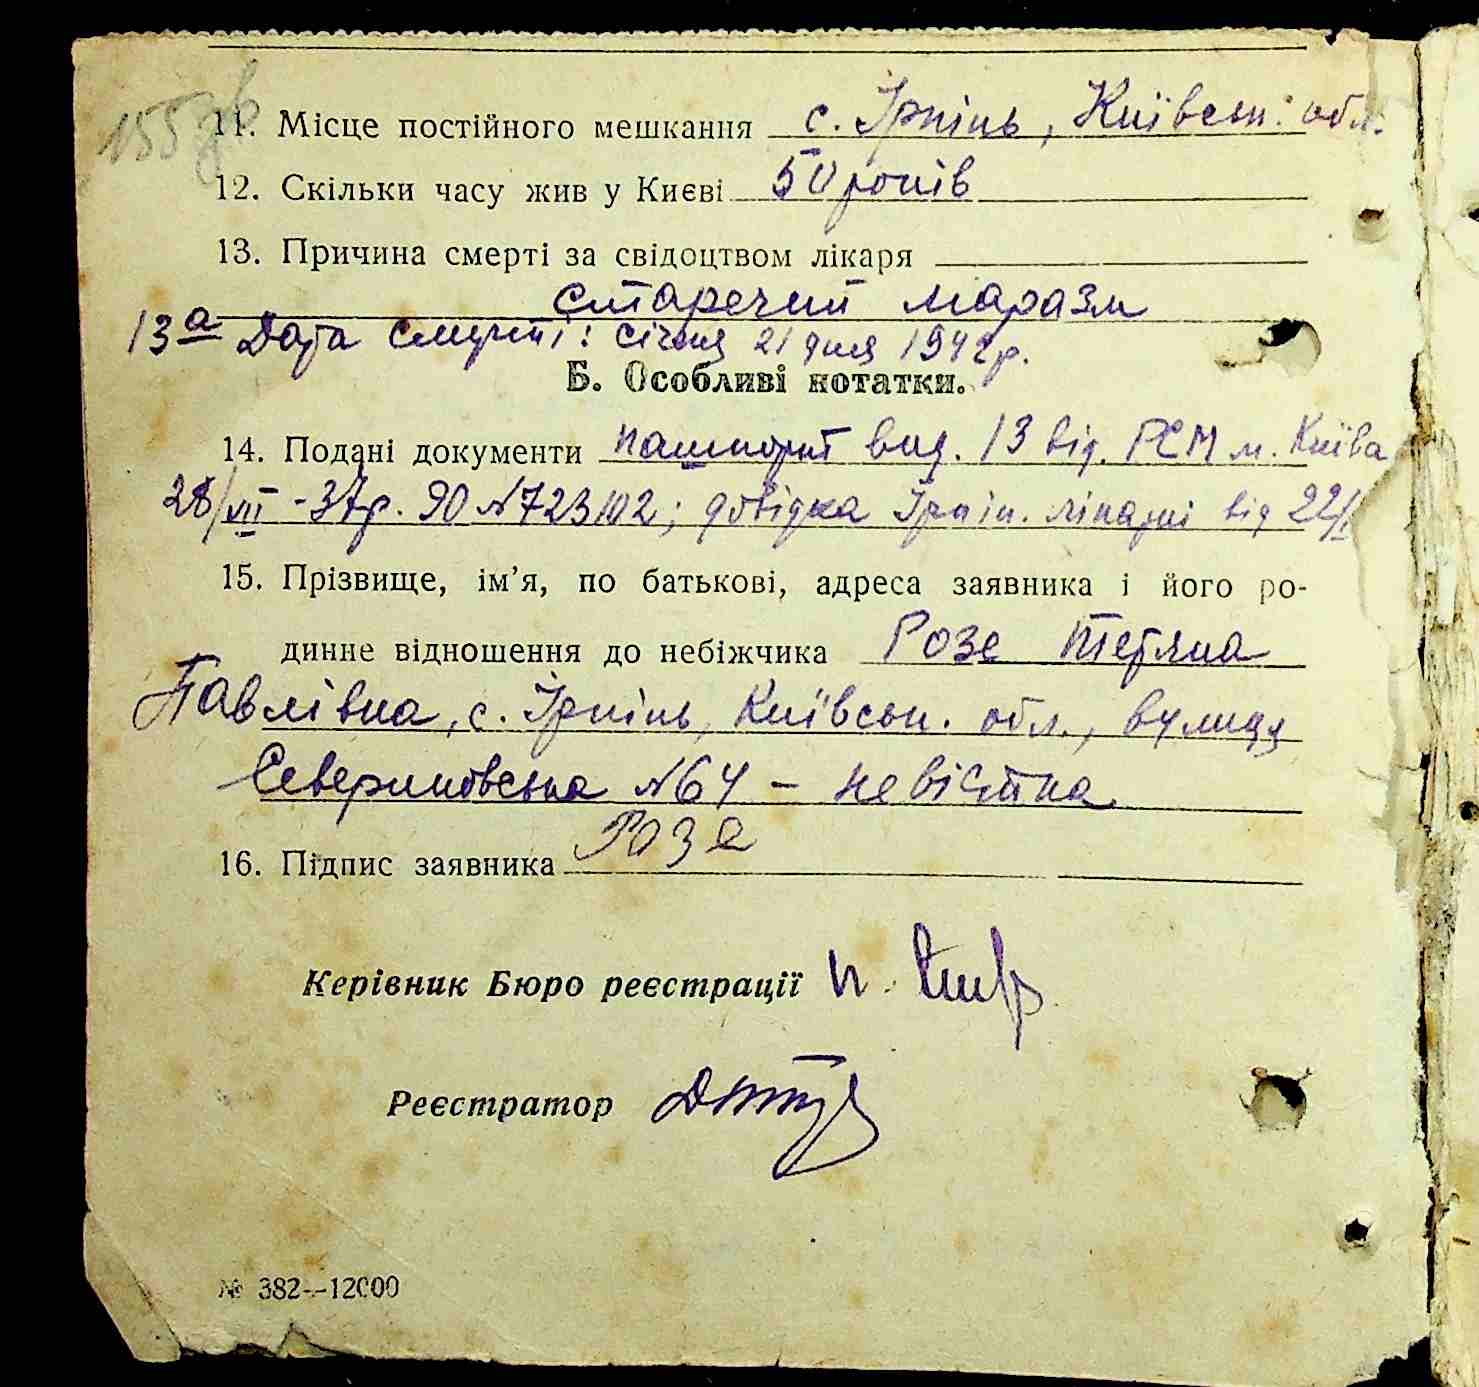 155зв
11. Місце постійного мешкання с. Ірпінь, Київськ. обл.
12. Скільки часу жив у Києві 50 років
13. Причина смерті за свідоцтвом лікаря
старечий маразм
13а Дата смерті: січня 21 дня 1942р.
Б. Особливі нотатки.
14. Подані документи пашпорт вид. 13 від. РСМ м. Київа
28/VII-37р. ЯО №723102; довідка Ірпін. лікарні від 22/I
15. Прізвище, ім’я, по батькові, адреса заявника і його ро-
динне відношення до небіжчика Розе Тетяна
Павлівна, с. Ірпінь, Київськ. обл., вулиця
Севериновська №64 – невістка
16. Підпис заявника Розе
Керівник Бюро реєстрації
Реєстратор
№ 382—12000